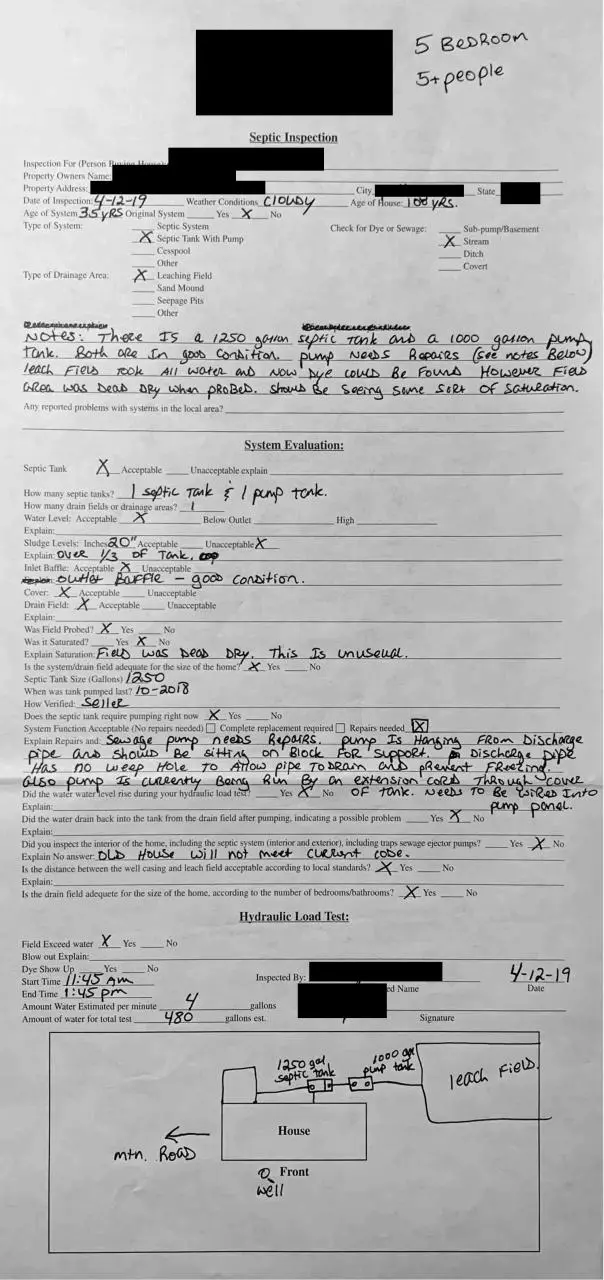 5 BEDROOM
5+people
Septic Inspection
Inspection For (Person Buying House):
Property Owners Name:
Property Address: City, State
Date of Inspection: 4-12-19 Weather Conditions Cloudy Age of House: 100 yRS.
Age of System 35 yRS Original System ___ Yes X No
Type of System: ___ Septic System Check for Dye or Sewage: ___ Sub-pump/Basement
X Septic Tank With Pump X Stream
___ Cesspool ___ Ditch
___ Other ___ Covert
Type of Drainage Area: X Leaching Field
___ Sand Mound
___ Seepage Pits
___ Other
NOTES: There Is a 1250 gallon septic tank and a 1000 gallon pump
tank. Both are In good Condition. pump Needs Repairs (see notes Below)
leach Field took All water and Now Dye could Be Found However Field
Area was Dead Dry when probed. should Be Seeing some sort of saturation.
Any reported problems with systems in the local area?
System Evaluation:
Septic Tank X Acceptable ___ Unacceptable explain
How many septic tanks? 1 septic Tank & 1 pump tank.
How many drain fields or drainage areas? 1
Water Level: Acceptable X Below Outlet ___ High ___
Explain:
Sludge Levels: Inches 20" Acceptable ___ Unacceptable X
Explain: over 1/3 of Tank.
Inlet Baffle: Acceptable X Unacceptable
outlet Baffle - good condition.
Cover: X Acceptable ___ Unacceptable
Drain Field: X Acceptable ___ Unacceptable
Explain:
Was Field Probed? X Yes ___ No
Was it Saturated? ___ Yes X No
Explain Saturation: Field was Dead Dry. This Is unusual.
Is the system/drain field adequate for the size of the home? X Yes ___ No
Septic Tank Size (Gallons) 1250
When was tank pumped last? 10-2018
How Verified: Seller
Does the septic tank require pumping right now X Yes ___ No
System Function Acceptable (No repairs needed) ☐ Complete replacement required ☐ Repairs needed ☒
Explain Repairs and: Sewage pump needs Repairs. pump Is Hanging From Discharge
pipe and should Be sitting on Block For support. Discharge pipe
Has no weep Hole to Allow pipe To Drain and prevent Freezing.
Also pump Is currently Being Run By an extension cord Through Cover
Did the water water level rise during your hydraulic load test? ___ Yes X No of tank. Needs to Be wired Into
Explain: pump panel.
Did the water drain back into the tank from the drain field after pumping, indicating a possible problem ___ Yes X No
Explain:
Did you inspect the interior of the home, including the septic system (interior and exterior), including traps sewage ejector pumps? ___ Yes X No
Explain No answer: OLD House will not meet current code.
Is the distance between the well casing and leach field acceptable according to local standards? X Yes ___ No
Explain:
Is the drain field adequete for the size of the home, according to the number of bedrooms/bathrooms? X Yes ___ No
Hydraulic Load Test:
Field Exceed water X Yes ___ No
Blow out Explain:
Dye Show Up ___ Yes ___ No
Start Time 11:45 Am Inspected By: 4-12-19
End Time 1:45 pm ed Name Date
Amount Water Estimated per minute 4 gallons
Amount of water for total test 480 gallons est. Signature
1250 gal septic tank
1000 gal pump tank
leach Field.
House
mtn. Road
Front
well